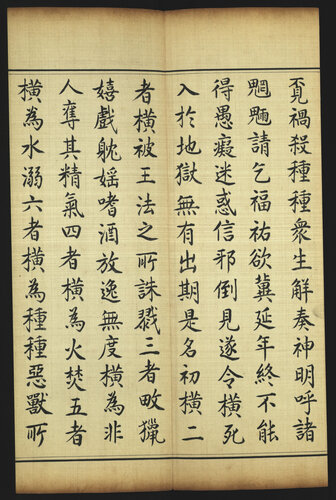 覔禍殺種種衆生解奏神明呼諸
魍魎請乞福祐欲冀延年終不能
得愚癡迷惑信邪倒見遂令橫死
入於地獄無有出期是名初橫二
者橫被王法之所誅戮三者畋獵
嬉戲躭婬嗜酒放逸無度橫為非
人奪其精氣四者橫為火焚五者
橫為水溺六者橫為種種惡獸所